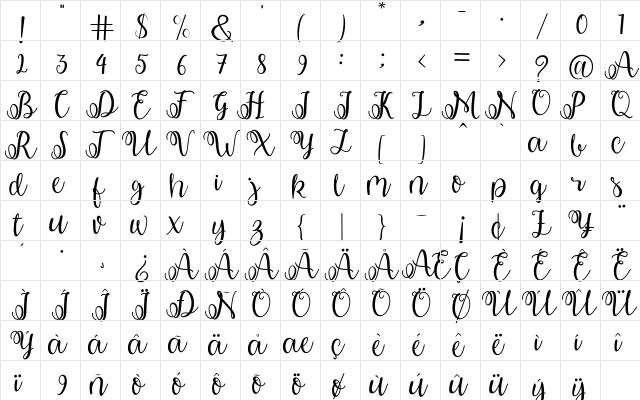 ! " # $ % & ' ( ) * , - . / 0 1
2 3 4 5 6 7 8 9 : ; < = > ? @ A
B C D E F G H I J K L M N O P Q
R S T U V W X Y Z [ ] ^ ` a b c
d e f g h i j k l m n o p q r s
t u v w x y z { | } ¯ ¡ ¢ £ ¥ ¨
´ · ¸ ¿ À Á Â Ã Ä Å Æ Ç È É Ê Ë
Ì Í Î Ï Ð Ñ Ò Ó Ô Õ Ö Ø Ù Ú Û Ü
Ý à á â ã ä å æ ç è é ê ë ì í î
ï ð ñ ò ó ô õ ö ø ù ú û ü ý ÿ